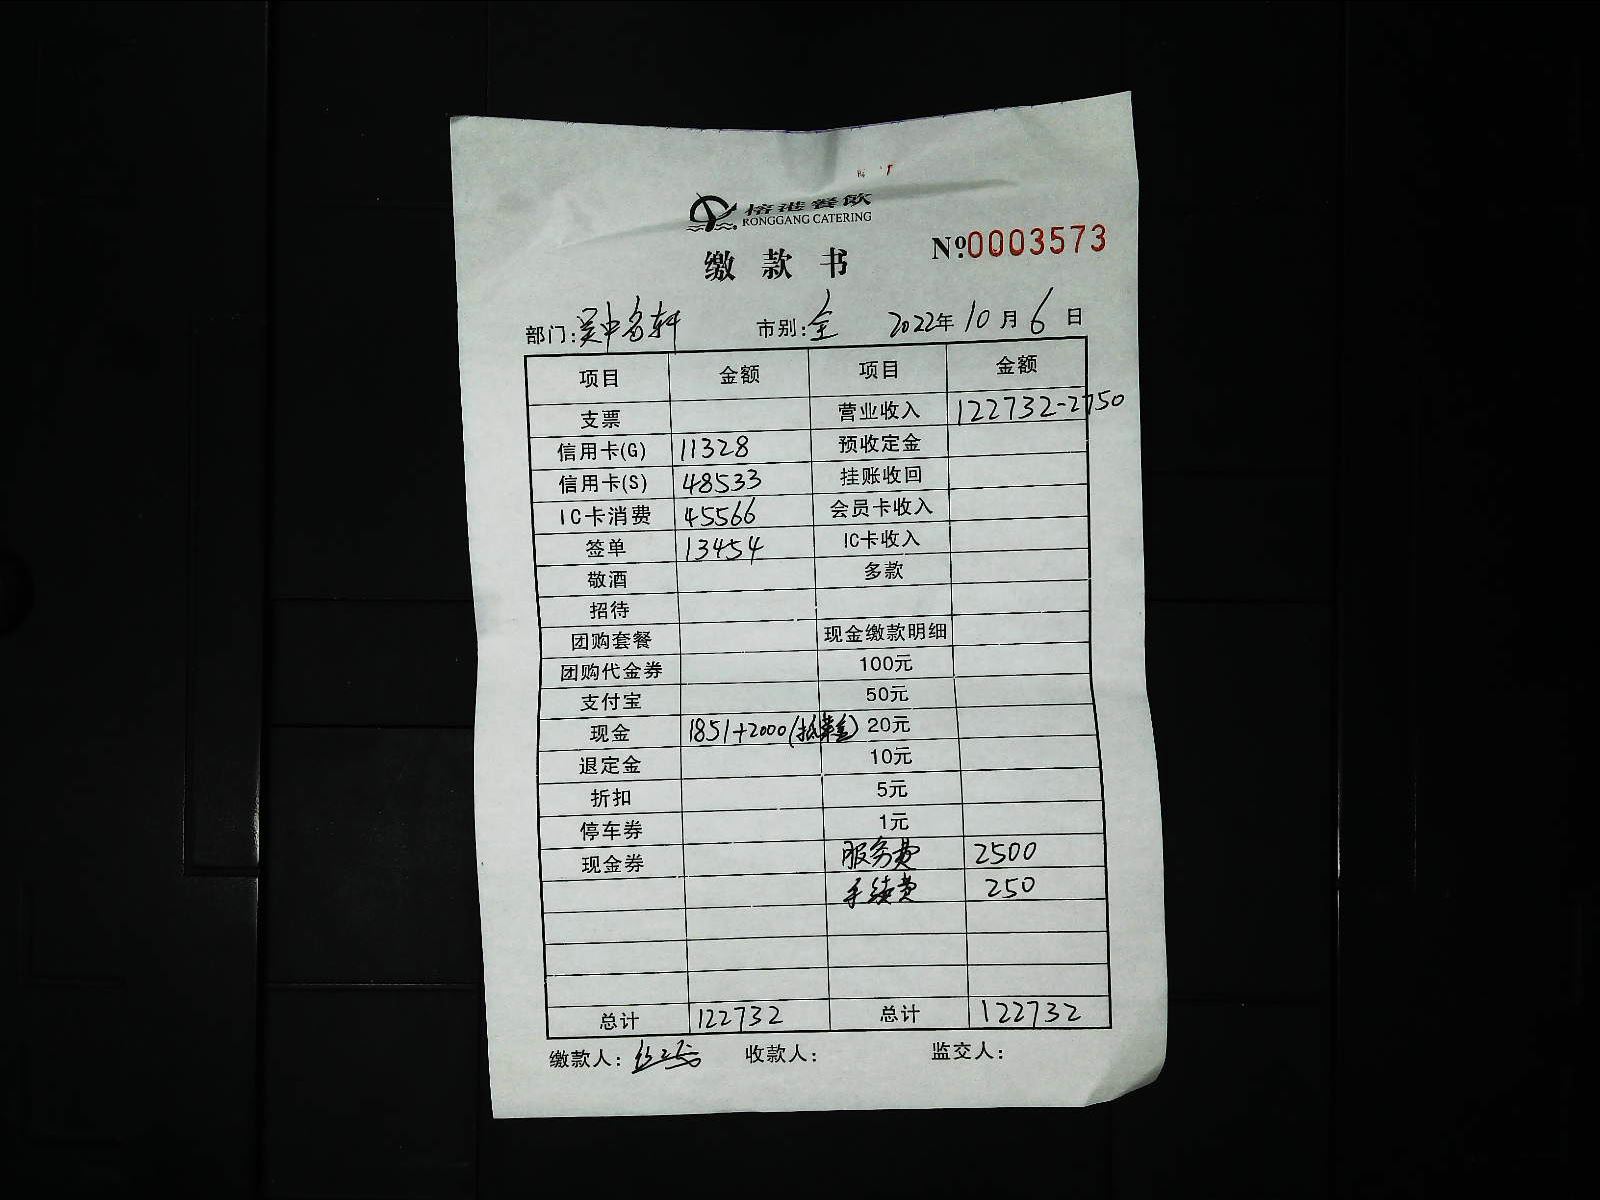 榕港餐飲
RONGGANG CATERING
缴款书 №0003573
部门：吴中名轩 市别：全 2022年10月6日
项目 金额 项目 金额
支票 营业收入 122732-2750
信用卡(G) 11328 预收定金
信用卡(S) 48533 挂账收回
IC卡消费 45566 会员卡收入
签单 13454 IC卡收入
敬酒 多款
招待
团购套餐 现金缴款明细
团购代金券 100元
支付宝 50元
现金 1851+2000( 20元
退定金 10元
折扣 5元
停车券 1元
现金券 服务费 2500
手续费 250
总计 122732 总计 122732
缴款人： 收款人： 监交人：